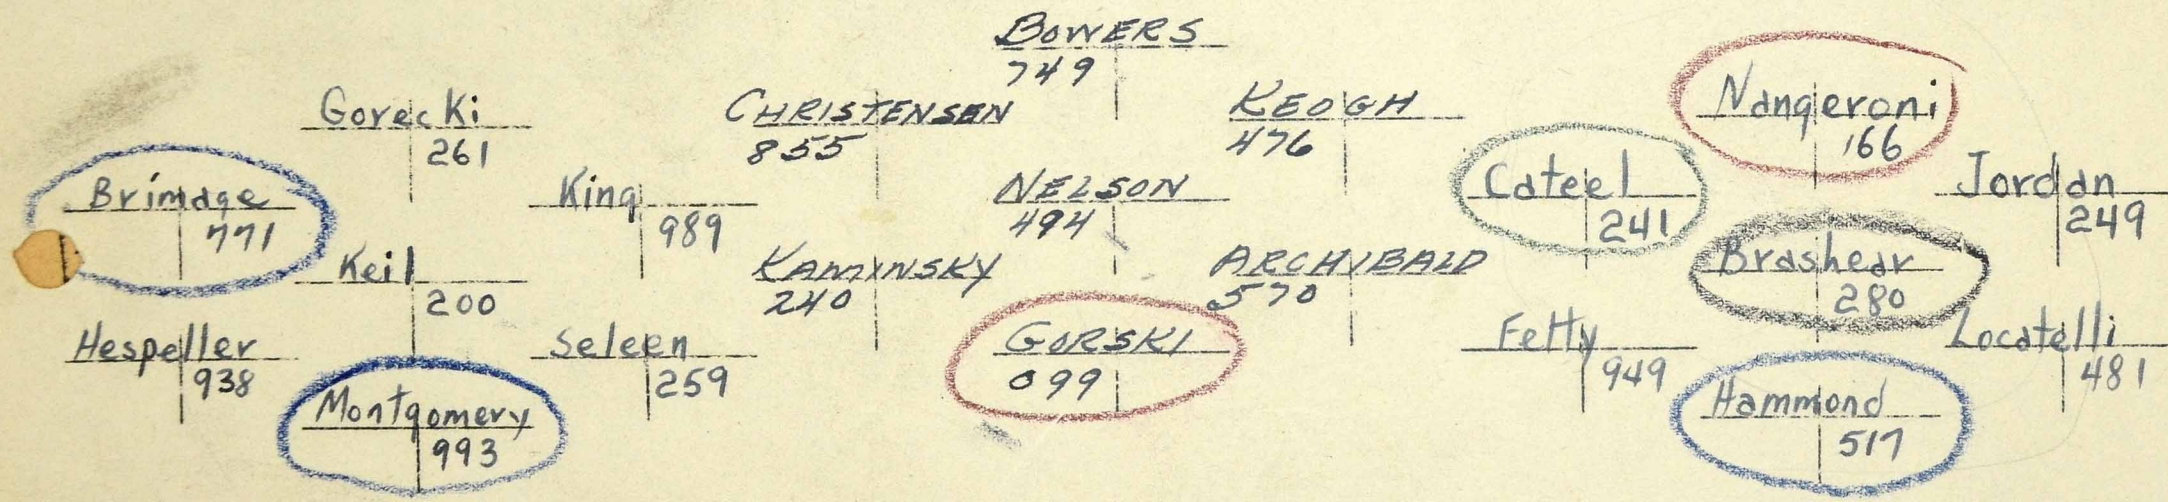 BOWERS
749
Gorecki
261
CHRISTENSEN
855
KEOGH
476
Nangeroni
166
Brimage
771
King
989
NELSON
494
Cateel
241
Jordan
249
Keil
200
KAMINSKY
240
ARCHIBALD
570
Brashear
280
Hespeller
938
Seleen
259
GORSKI
099
Fetty
949
Locatelli
481
Montgomery
993
Hammond
517